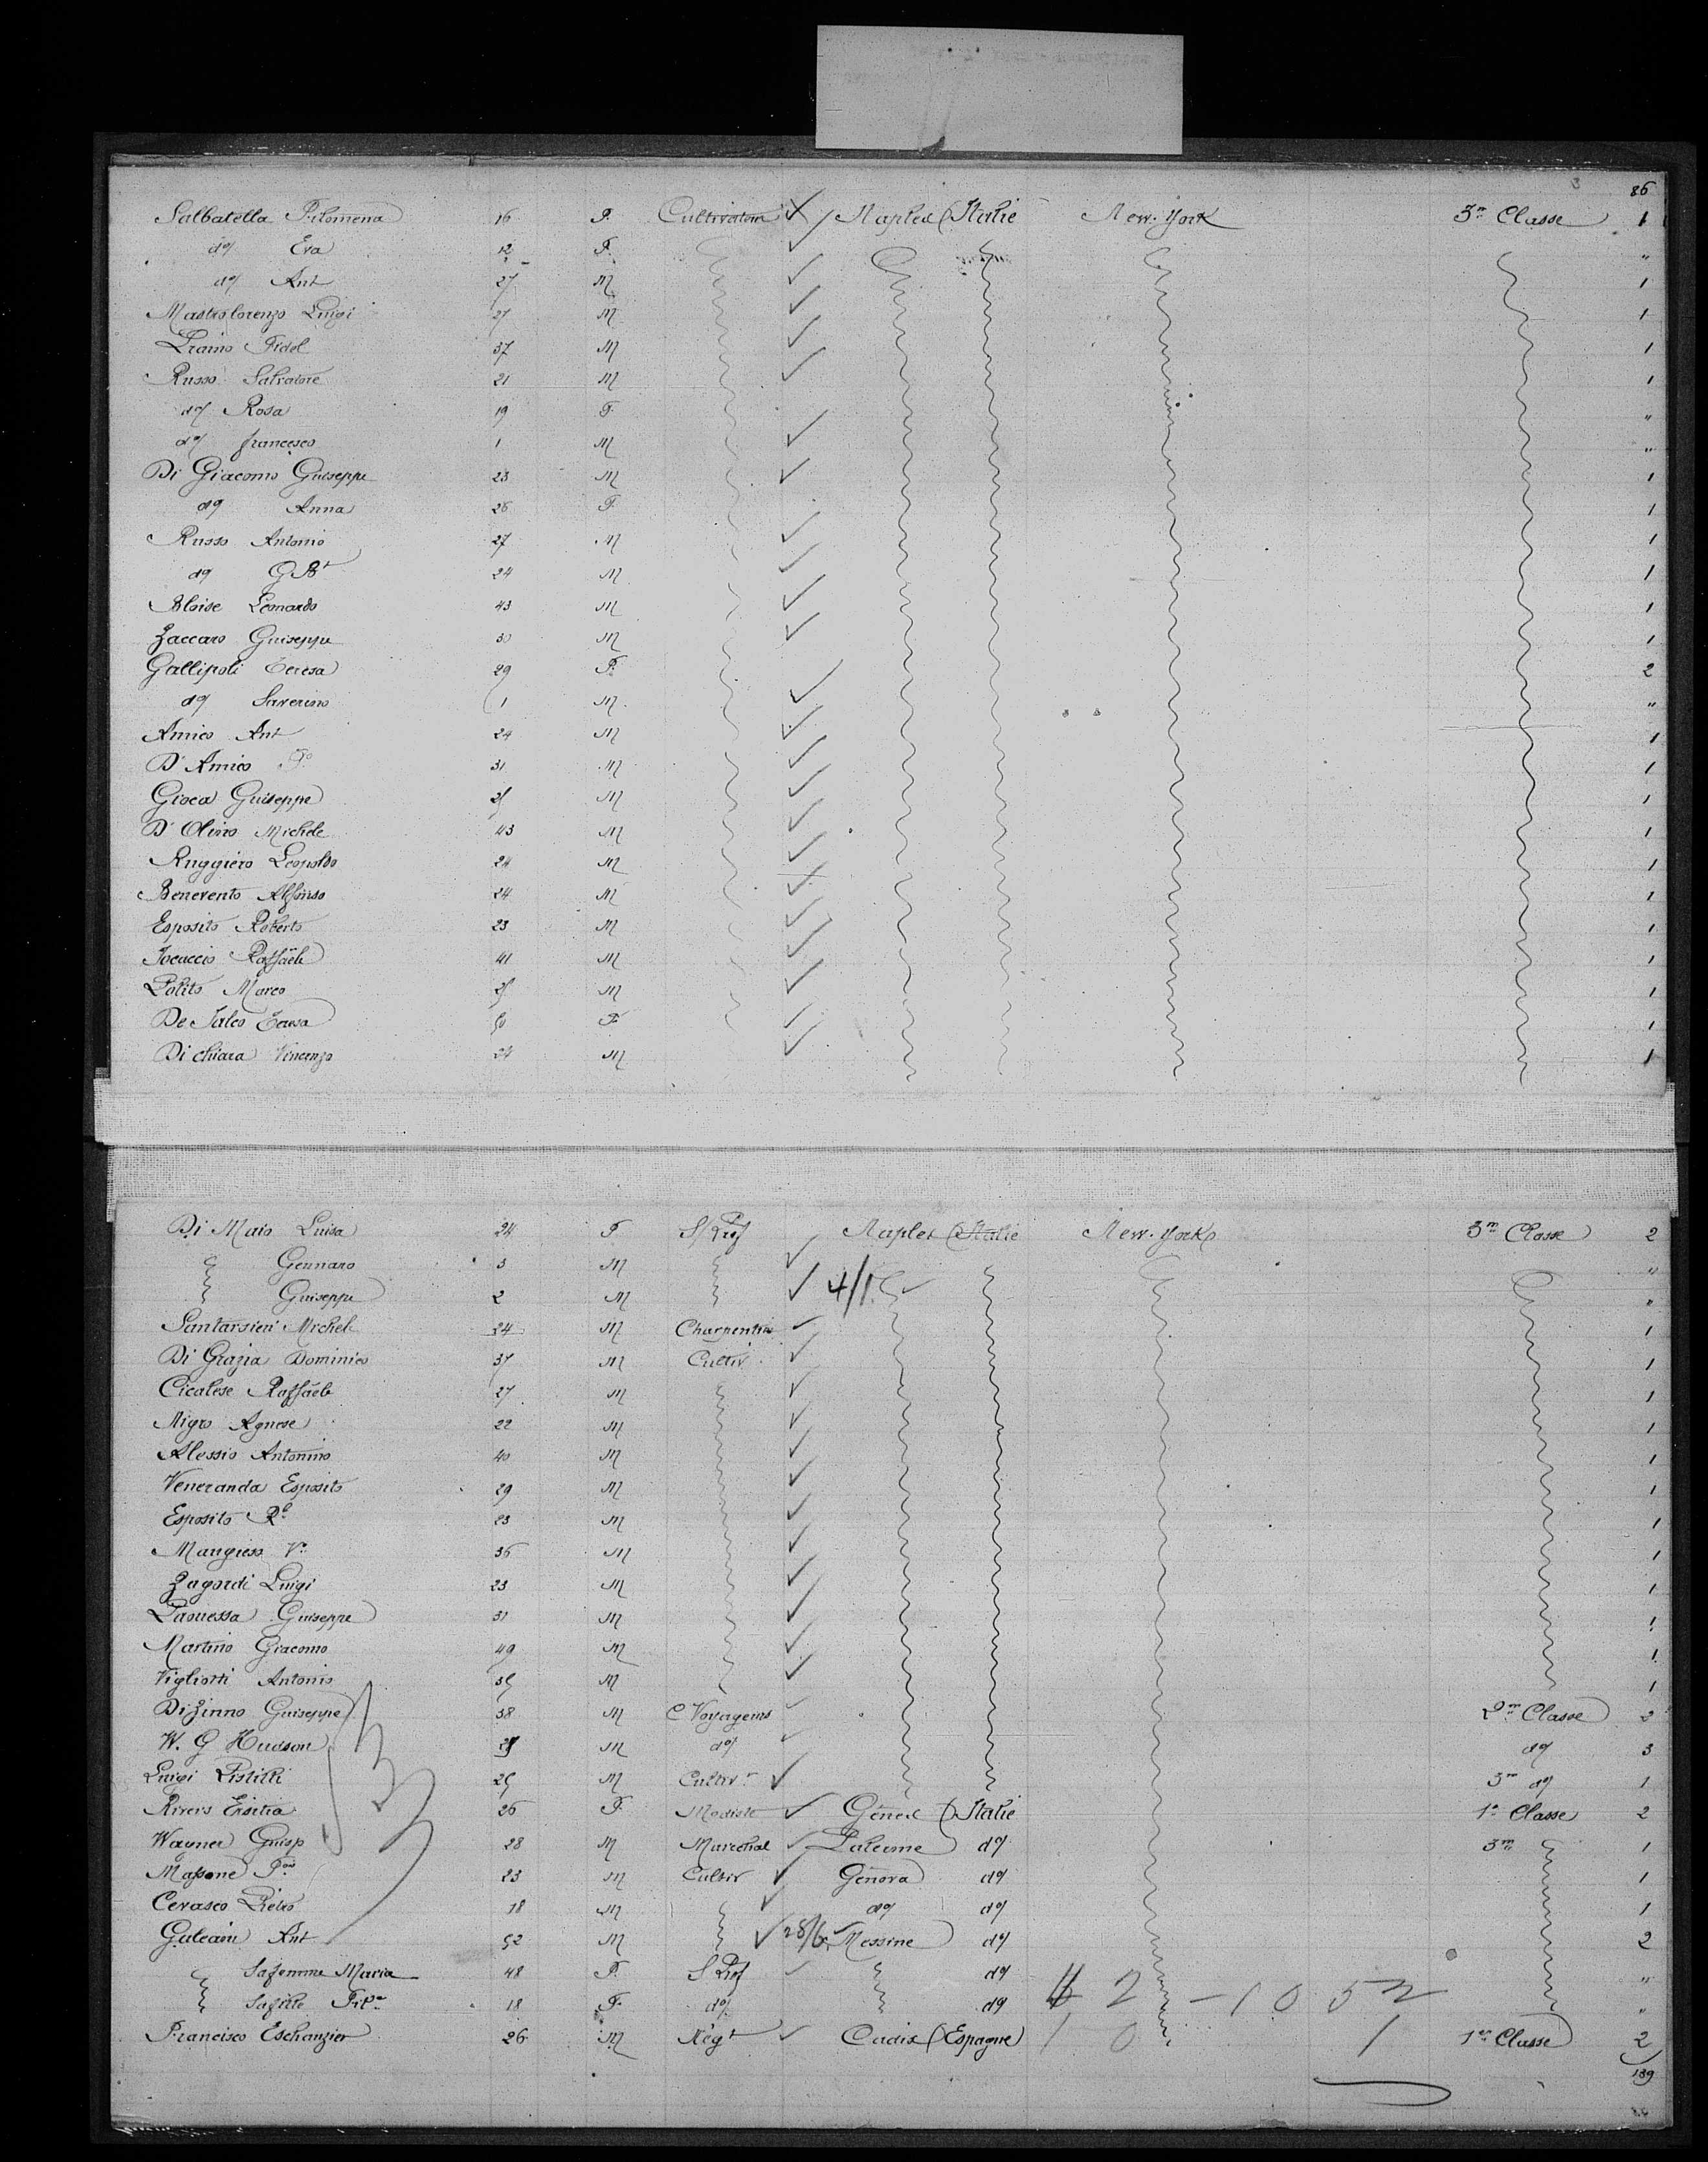 86
Salbatella Filomena 16 F. Cultivateur Naples (Italie New-York 3m Classe 1
do Eva 12 F. "
do Ant 27 M 1
Mastrolorenzo Luigi 27 M 1
Praino Fidel 37 M 1
Russo Salvatore 21 M 1
do Rosa 19 F. "
do francesco 1 M "
Di Giacomo Guiseppe 23 M 1
do Anna 26 F. 1
Russo Antonio 27 M 1
do G Bt 24 M 1
Bloise Leonardo 43 M 1
Zaccaro Guiseppe 30 M 1
Gallipoli Teresa 29 F. 2
do Saverino 1 M "
Amico Ant 24 M 1
D'Amico Fo 31 M 1
Gioca Guiseppe 25 M 1
D'Olivo Michele 43 M 1
Ruggiero Leopoldo 24 M 1
Benevento Alfonso 24 M 1
Esposito Roberto 23 M 1
Iocaccio Raffaele 41 M 1
Polito Marco 25 M 1
De Teresa 50 F 1
Di chiara Vincenzo 24 M 1
Di Maio Luisa 24 F S/Prof Naples (Italie New-York 3m Classe 2
Gennaro 3 M "
Guiseppe 2 M 4/1 "
Santarsieri Michele 24 M Charpentier 1
Di Grazia Dominico 37 M Cultiv. 1
Cicalese Raffaele 27 M 1
Nigro Agnese 22 M 1
Alessio Antonino 40 M 1
Veneranda Esposito 29 M 1
Esposito Ro 23 M 1
Mangieso Vo 36 M 1
Zagordi Luigi 23 M 1
Guiseppe 31 M 1
Martino Giacomo 49 M 1
Vigliotti Antonio 35 M 1
Di Zinno Guiseppe 38 M C Voyageurs 2m Classe 3
W. G Hudson M do do 3
Luigi Pistilli 25 M Cultivr 3m do 1
Rivers Ersilia 26 F. Modiste Gênes (Italie 1e Classe 2
Wagner Guisp 28 M Marechal Palerme do 3m 1
Massone Fco 23 M Cultiv Génova do 1
Cevasco Pietro 18 M do do 1
Ant 52 M 28/6 Messine do 2
Sa femme Maria 48 F. S Prof do "
Sa fille Fila 18 F. do do 2 - 1052 "
Francisco Eschanzier 26 M Négt Cadix (Espagne) 10 1 1re Classe 2
139